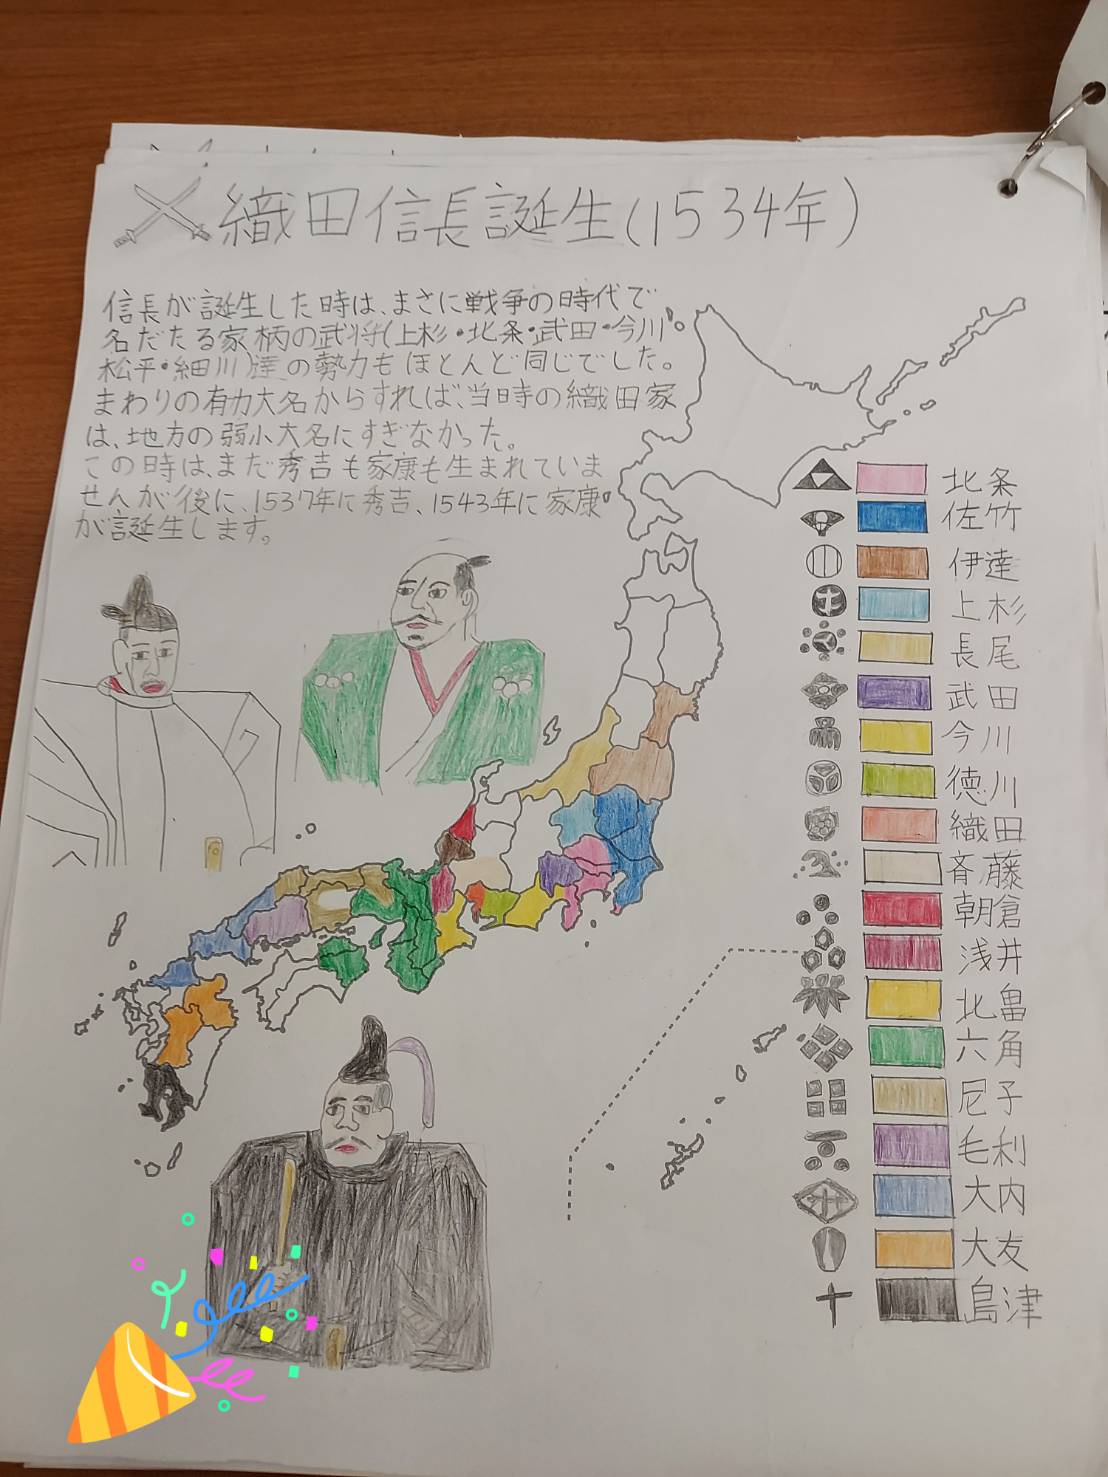 織田信長誕生(1534年)
信長が誕生した時は、まさに戦争の時代で
名だたる家柄の武将(上杉・北条・武田・今川・
松平・細川)達の勢力もほとんど同じでした。
まわりの有力大名からすれば、当時の織田家
は、地方の弱小大名にすぎなかった。
この時は、まだ秀吉も家康も生まれていま
せんが後に、1537年に秀吉、1543年に家康
が誕生します。
北条
佐竹
伊達
上杉
長尾
武田
今川
徳川
織田
斉藤
朝倉
浅井
北畠
六角
尼子
毛利
大内
大友
島津